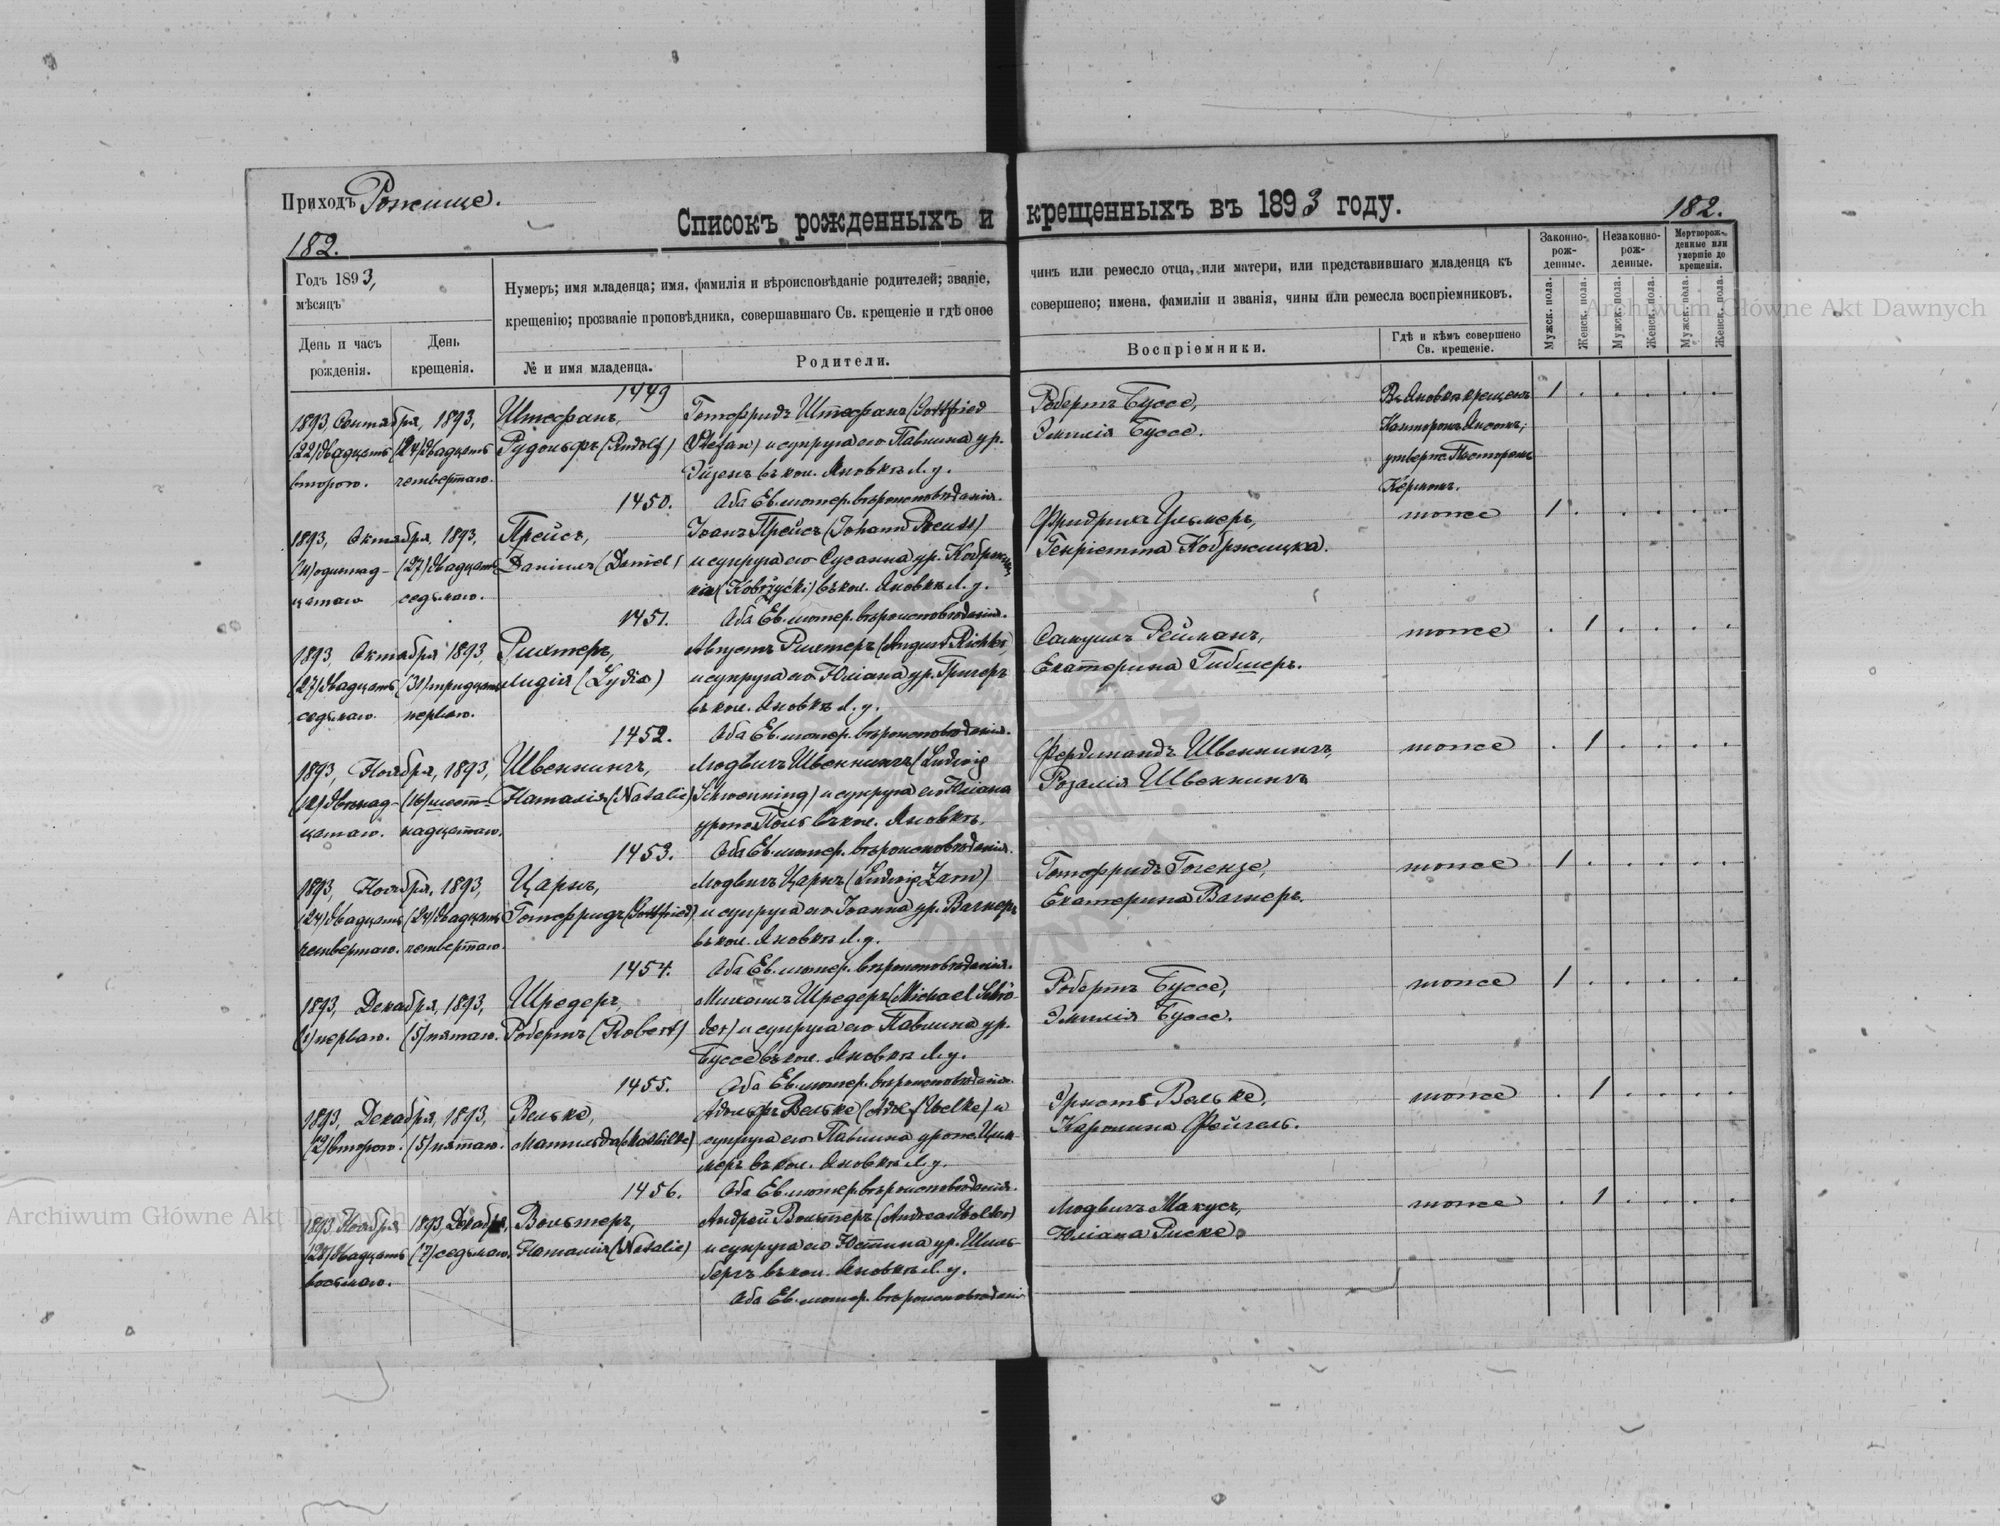 Приходъ Рожище.
Списокъ рожденныхъ и крещенныхъ въ 1893 году.
182.
182.
Годъ 1893,
мѣсяцъ
День и часъ рожденія.
День крещенія.
Нумеръ; имя младенца; имя, фамилія и вѣроисповѣданіе родителей; званіе,
крещенію; прозваніе проповѣдника, совершавшаго Св. крещеніе и гдѣ оное
№ и имя младенца.
Родители.
чинъ или ремесло отца, или матери, или представившаго младенца къ
совершено; имена, фамиліи и званія, чины или ремесла воспріемниковъ.
Воспріемники.
Гдѣ и кѣмъ совершено
Св. крещеніе.
Законно-рож-денные.
Незаконно-рож-денные.
Мертворож-денные или умершіе до крещенія.
Мужск. пола.
Женск. пола.
Мужск. пола.
Женск. пола.
Мужск. пола.
Женск. пола.
1449
1893, Сентября, 1893,
(22) двадцать (24) двадцать
второго. четвертаго.
Штефанъ,
Рудольфъ (Rudolf)
Готфридъ Штефанъ (Gottfried
Stefan) и супруга его Павлина ур.
въ кол. Яновкѣ Л. у.
Оба Ев. лютер. вѣроисповѣданія.
Робертъ Буссе,
Эмилія Буссе.
Въ Яновкѣ крещенъ
Канторомъ
утвержд. Пасторомъ
1
1450.
1893, Октября, 1893,
(11) одиннад- (27) двадцать
цатаго седьмаго.
Прейсъ,
Даніилъ (Daniel)
Іоанъ Прейсъ (Johann Preuss)
и супруга его Сусанна ур.
(Kobrzycki) въ кол. Яновкѣ Л. у.
Оба Ев. лютер. вѣроисповѣданія.
Фридрихъ
Генріетта Кобржицка.
тоже
1
1451.
1893, Октября 1893,
(27) двадцать (31) тридцать
седьмаго. перваго.
Рихтеръ,
Лидія (Lydia)
Августъ Рихтеръ (August Richter)
и супруга его Юліана ур.
въ кол. Яновкѣ Л. у.
Оба Ев. лютер. вѣроисповѣданія.
Самуилъ Рейманъ,
Екатерина
тоже
1
1452.
1893, Ноября, 1893,
(12) двѣнад- (16) шест-
цатаго. надцатаго.
Швеннингъ,
Наталія (Natalie)
Людвигъ Швеннингъ (Ludwig
Schwenning) и супруга его Юліана
урожд. въ кол. Яновкѣ.
Оба Ев. лютер. вѣроисповѣданія.
Фердинандъ Швеннингъ,
Розалія Швеннингъ
тоже
1
1453.
1893, Ноября, 1893,
(24) двадцать (24) двадцать
четвертаго. четвертаго.
Царнъ,
Готфридъ (Gottfried)
Людвигъ Царнъ (Ludwig Zarn)
и супруга его Іоанна ур. Вагнеръ
въ кол. Яновкѣ Л. у.
Оба Ев. лютер. вѣроисповѣданія.
Готфридъ Гогензе,
Екатерина Вагнеръ.
тоже
1
1454.
1893, Декабря, 1893,
(1) перваго. (5) пятаго.
Шредеръ,
Робертъ (Robert)
Михаилъ Шредеръ (Michael Schrö-
der) и супруга его Павлина ур.
Буссе въ кол. Яновкѣ Л. у.
Оба Ев. лютер. вѣроисповѣданія.
Робертъ Буссе,
Эмилія Буссе.
тоже
1
1455.
1893, Декабря, 1893,
(2) второго. (5) пятаго.
Вельке,
Матильда (Mathilde)
Адольфъ Вельке (Adolf Welke) и
супруга его Павлина урожд. Цим-
меръ въ кол. Яновкѣ Л. у.
Оба Ев. лютер. вѣроисповѣданія.
Эрнстъ Вельке,
Каролина Фейгель.
тоже
1
1456.
1893 Ноября 1893 Декабря,
(28) двадцать (7) седьмаго.
восьмаго.
Вольтеръ,
Наталія (Natalie)
Андрей Вольтеръ (Andreas Wolter)
и супруга его Юстина ур. Шиль-
бергъ въ кол. Яновкѣ Л. у.
Оба Ев. лютер. вѣроисповѣданія
Людвигъ Макусъ,
Юліана Риске.
тоже
1
Archiwum Główne Akt Dawnych
Archiwum Główne Akt Dawnych